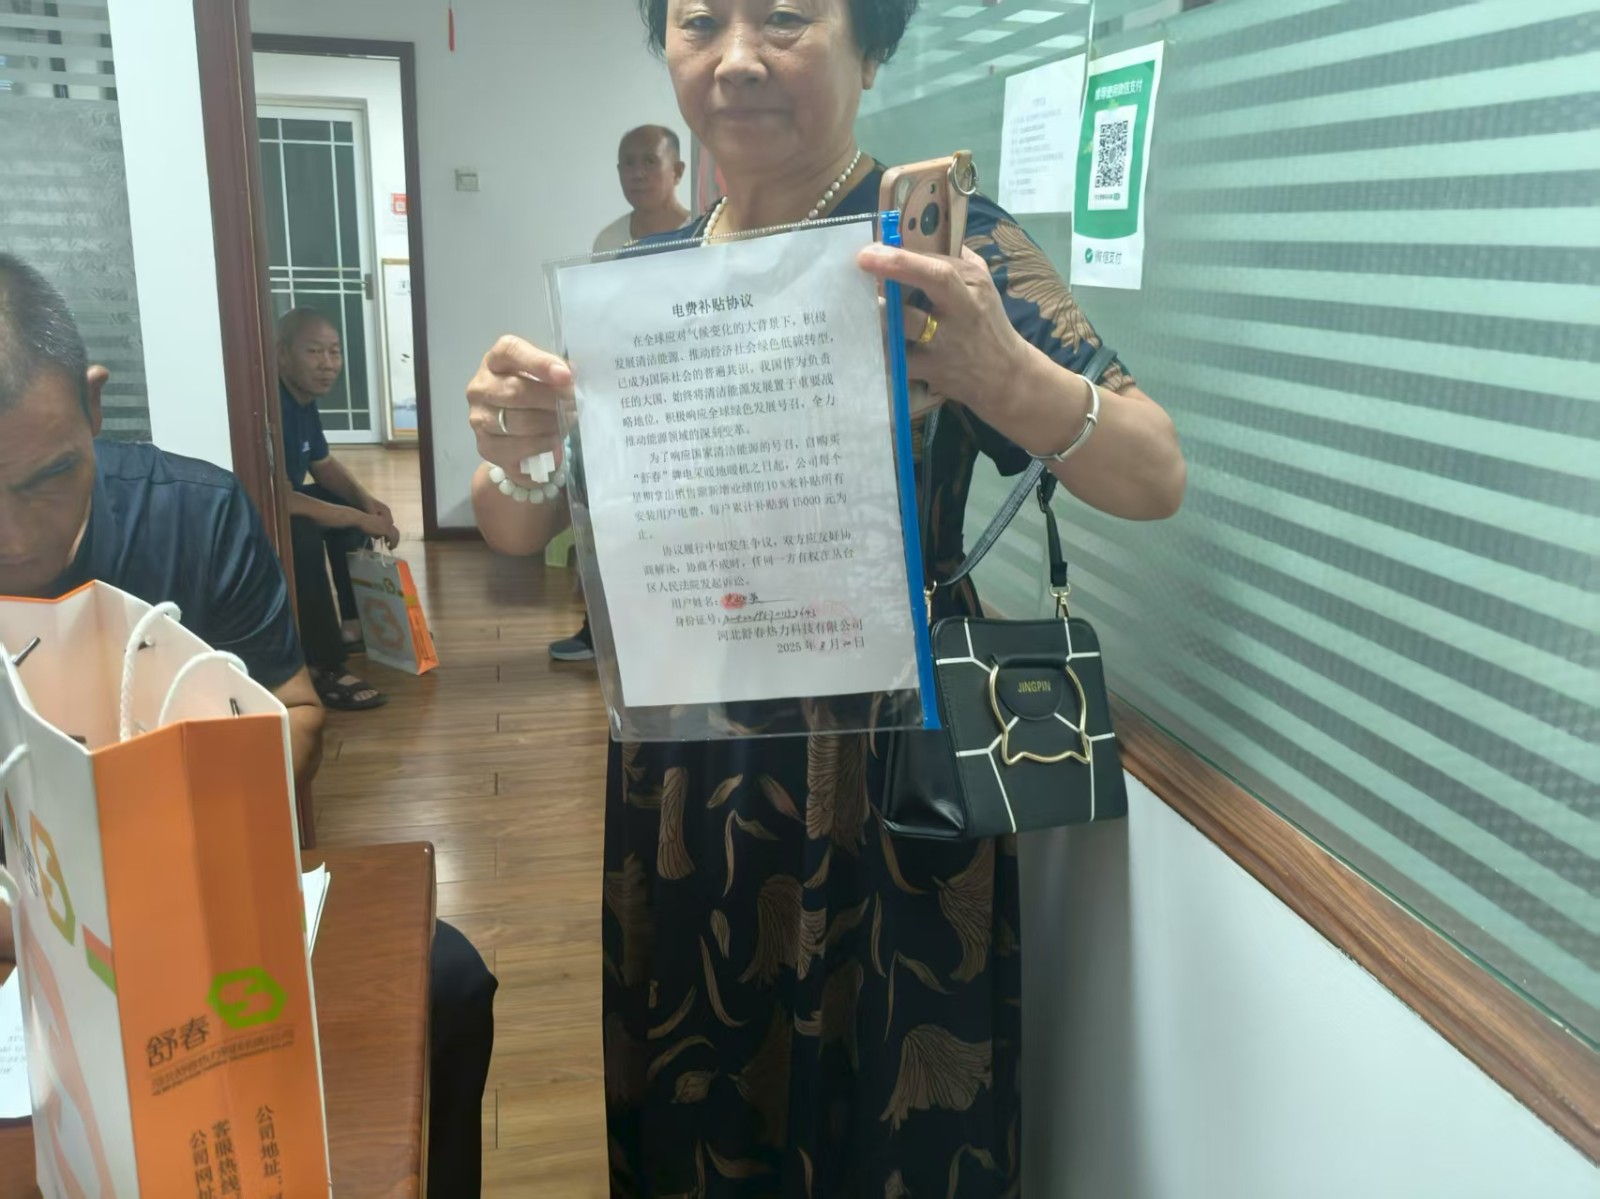 电费补贴协议
在全球应对气候变化的大背景下，积极
发展清洁能源、推动经济社会绿色低碳转型，
已成为国际社会的普遍共识，我国作为负责
任的大国，始终将清洁能源发展置于重要战
略地位，积极响应全球绿色发展号召，全力
推动能源领域的深刻变革。
为了响应国家清洁能源的号召，自购买
“舒春”牌电采暖地暖机之日起，公司每个
星期拿出销售额新增业绩的10%来补贴所有
安装用户电费，每户累计补贴到 15000 元为
止。
协议履行中如发生争议，双方应友好协
商解决，协商不成时，任何一方有权在丛台
区人民法院发起诉讼。
用户姓名：
身份证号：
河北舒春热力科技有限公司
2025 年 8 月 20 日
推荐使用微信支付
微信支付
JINGPIN
舒春
公司地址：
客服热线
公司网址